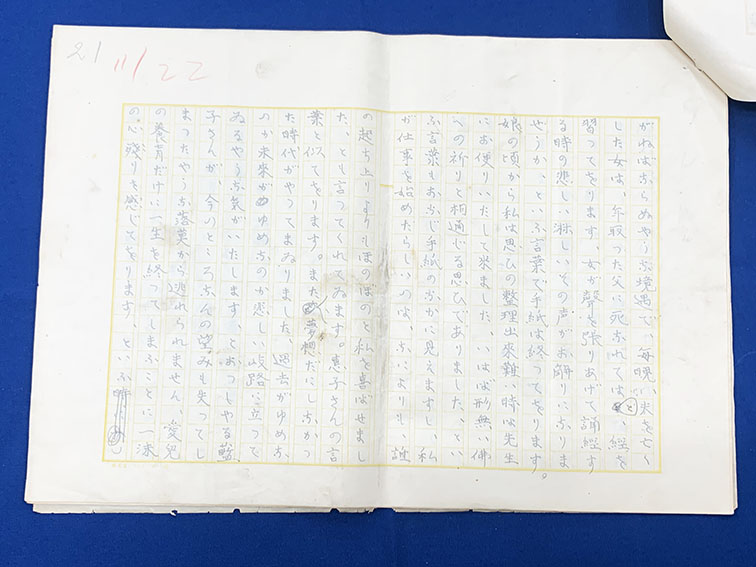 21
11/22
がねばならぬやうな境遇で、毎晩、夫を亡く
した女は、年取つた父に死なれてはと、経を
習つてをります、女が聲を張りあげて誦経す
る時の悲しい淋しいその声がお解りになりま
せうか、といふ言葉で手紙は終つてをります。
娘の頃から私は思ひの整理出来難い時は先生
にお便りいたして来ました、いはば形無い佛
への祈りと相通じる思ひでありました、とい
ふ言葉もおなじ手紙のなかに見えますし、私
が仕事を始めたらしいのは、なによりも、誰
の起ち上りよりもほのぼのと私を喜ばせまし
た、とも言つてくれてゐます。恵子さんの言
葉と似てをります。また夢想だにしなかつ
た時代がやつてまゐりました、過去がゆめな
のか未来がゆめなのか悲しい岐路に立つて
ゐるやうな気がいたします、とおつしやる
子さんが、今のところなんの望みも失つてし
まつたやうな落莫から逃れられません、愛児
の養育だけに一生を終つてしまふことに一沫
の心残りを感じてをります、といふ